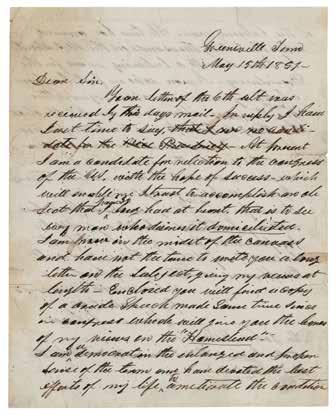 Greeneville Tenn
May 15th 1851—
Dear Sir.
Your letter of the 6th ult was
received by this days mail. In reply I have
Just time to say, that I am no candi-
date for the Vice Presidency. At present
I am a candidate for relection to the congress
of the US. with the hope of success which
will enable me I trust to accomplish an ob
Ject that I long had at heart. that is to see
every man who desires it domesticated.
I am now in the midst of the canvass
and have not the time to write you a long
letter on the subject, giving my views at
length— Enclosed you will find a copy
of a speech made some time since
in congress which will give you the
of my views on the "Homestead".
I am a democrat in the enlarged and proper
sense of the term and have devoted the best
efforts of my life to ameliorate the condition